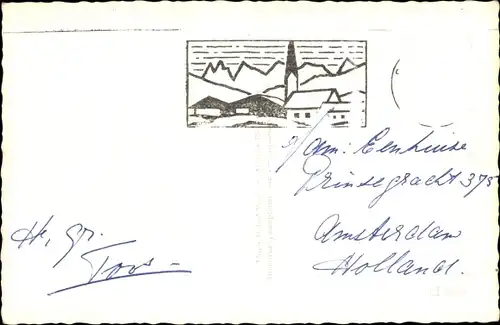 Fam: Eenhuise
Prinsegracht 375
Amsterdam
Holland.
H. gr.
Toos